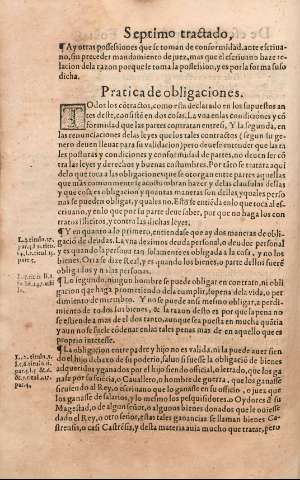 Septimo tractado,
¶ Ay otras possessiones que se toman de conformidad, ante escriua-
no, sin preceder mandamiento de juez, mas que el escriuano haze re-
lacion dela razon porque le toma la possession, y es por la forma suso
dicha.
Practica de obligaciones.
TOdos los cõtractos, como esta declarado en los
tes deste, consistẽ en dos cosas. La vna en las condiciones y cõ
formidad que las partes contratan entre si, Y la segunda, en
las renunciaciones de las leyes que los tales contractos (segun su ge-
nero deuen lleuar para su validacion) pero deuese entender que las ta
les posturas y condiciones y conformidad de partes, no deuen ser cõ
tra las leyes y derechos y buenas costumbres. Por tãto se tratara aqui
delo que toca a las obligaciones que se otorgan entre partes aquellas
que mas comunmente se acostumbran hazer y delas clausulas dellas
y que cosa es obligacion y quantas maneras son dellas, y quales perso
nas se pueden obligar, y quales no. Esto se entiẽda en lo que toca al es-
criuano, y en lo que por su parte deue saber, por que no haga los con
tractos illicitos, y contra las dichas leyes.
¶ Y en quanto a lo primero, entiendase que ay dos maneras de obli-
gacion de deudas. La vna dezimos deuda personal, o deudor personal
y es quando la persona tan solamente es obligada a la cosa, y no los
bienes. Otra se dize Real, y es quando los bienes, o parte dellos fuerẽ
obligados y no las personas.
¶ Lo segundo, ningun hombre se puede obligar en contrato, ni obli
gacion que haga prometiendo dela cumplir, so pena dela vida, o per
dimiento de miembro. Y no se puede assi mesmo obligar, a perdi-
miento de todos los bienes. &. la razon desto es por que la pena no
se estiende a mas de el dos tanto, aunque sea puesta en mucha quãtia
y aun no se suele cõdenar en las tales penas mas de en aquello que es
proprio interesse.
¶ La obligacion entre padre y hijo no es valida, ni la puede auer siendo
el hijo debaxo de su poderio, saluo si fuesse la obligacio de bienes
adquiridos ganados por el hijo siendo official, o letrado, que los ga-
nasse por su sciencia, o Cauallero, o hombre de guerra, que los ganasse
siruiendo al Rey, o escriuano que lo ganasse en su officio, o juez que
los ganasse de salarios, y lo mesmo los pesquisidores, o Oydores de su
Magestad, o de algun señor, o algunos bienes donados que le ouiesse
dado el Rey, o otro señor, estas tales ganancias se llaman bienes Ca-
strensis, o casi Castrẽsis, y desta materia auia mucho que tratar, pero